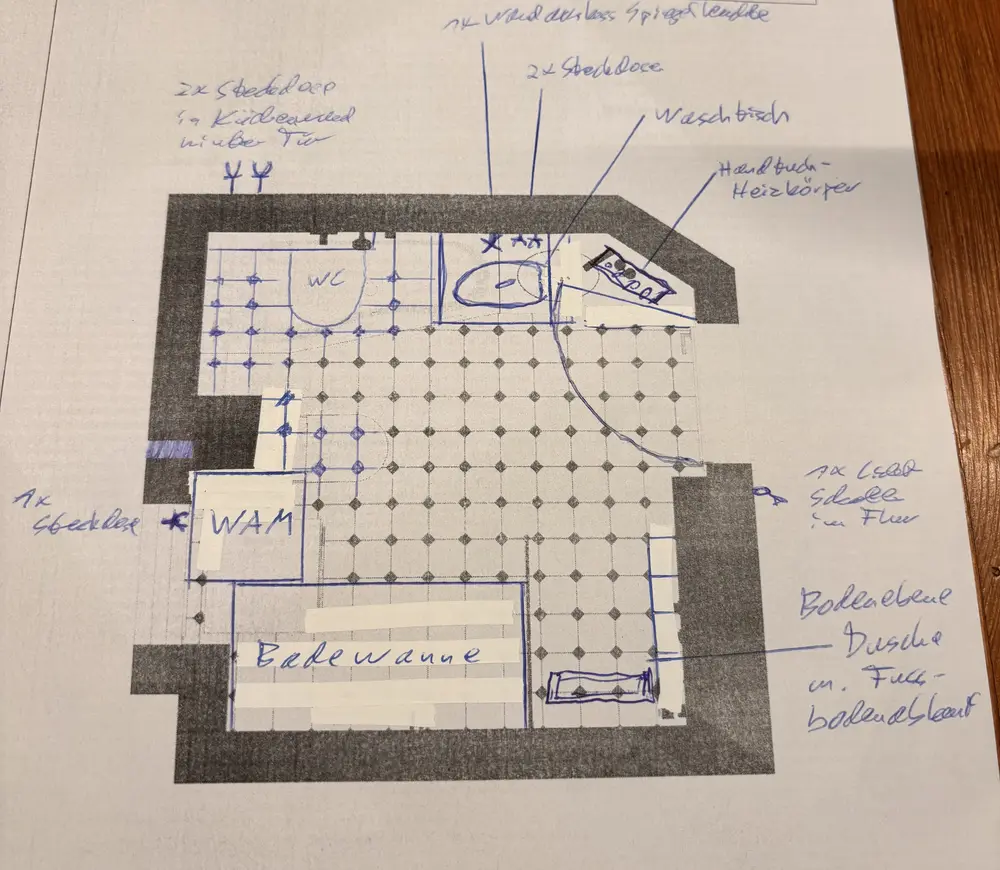 1x Wandanschluss Spiegelleuchte
2x Steckdose
2x Steckdose
in Küchenwand
hinter Tür
Waschtisch
Handtuch-
Heizkörper
WC
1x
Steckdose
WAM
1x Licht
Schalter
im Flur
Badewanne
Bodenebene
Dusche
m. Fuss-
bodenablauf